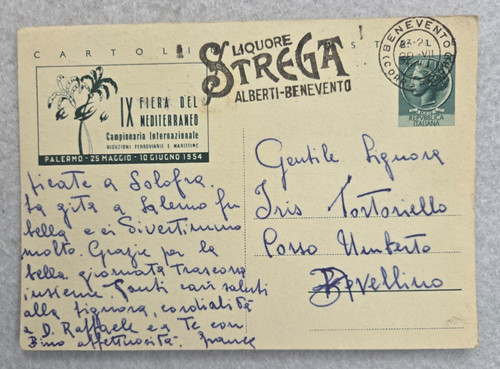 CARTOLI
ST
LIQUORE
STREGA
ALBERTI-BENEVENTO
BENEVENTO
REPUBBLICA
ITALIANA
IX FIERA DEL
MEDITERRANEO
Campionaria Internazionale
RIDUZIONI FERROVIARIE E MARITTIME
PALERMO - 25 MAGGIO - 10 GIUGNO 1954
Gentile Signora
Iris Tortoriello
Corso Umberto
Avellino
siete a Solofra.
La gita a Salerno fu
bella e ci divertimmo
molto. Grazie per la
bella giornata trascorsa
insieme. Tanti cari saluti
alla Signora, cordialità
a D. Raffaele e a Te con
affettuosità. Franca